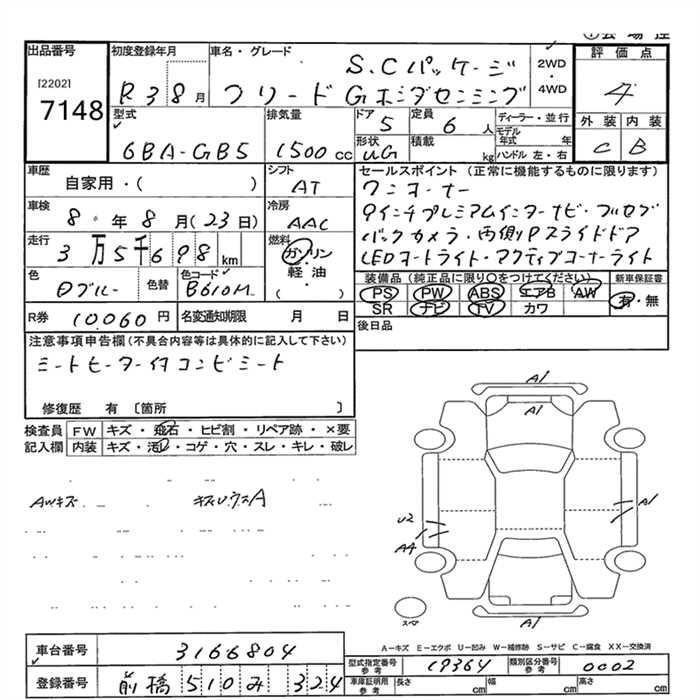 出品番号
[2202]
7148
初度登録年月
R 3 8 月
車名・グレード
S.Cパッケージ
フリード Gホンダセンシング
2WD
・
4WD
評価点
4
外装 内装
C B
型式
6BA-GB5
排気量
1500 cc
ドア
5
定員
6 人
形状
UG
積載
kg
ディーラー・並行
モデル年式 年
ハンドル 左・右
車歴
自家用・( )
シフト
AT
車検
8 年 8 月 (23日)
冷房
AAC
走行
3万5千698 km
燃料
ガソリン
軽油
( )
色
Dブルー
色替
色コード
B610M
R券 10,060 円
名変通知期限 月 日
セールスポイント (正常に機能するものに限ります)
ワンオーナー
9インチプレミアムインターナビ・フルセグ
バックカメラ・両側Pスライドドア
LEDオートライト・アクティブコーナーライト
装備品(純正品に限り○をつけてください) 新車保証書
PS PW ABS エアB AW
SR ナビ TV カワ
有・無
後日品
注意事項申告欄(不具合内容等は具体的に記入して下さい)
シートヒーター付 コンビシート
修復歴 有 〔箇所 〕
検査員 FW キズ・飛石・ヒビ割・リペア跡・×要
記入欄 内装 キズ・汚レ・コゲ・穴・スレ・キレ・破レ
AWキズ
A1
A1
A1
U2
A4
A1
スペア
A-キズ E-エクボ U-凹み W-補修跡 S-サビ C-腐食 XX-交換済
車台番号 3166804
登録番号 前橋 510 み 324
型式指定番号 参考 19364
類別区分番号 参考 0002
車庫証明用 参考 長さ cm 幅 cm 高さ cm